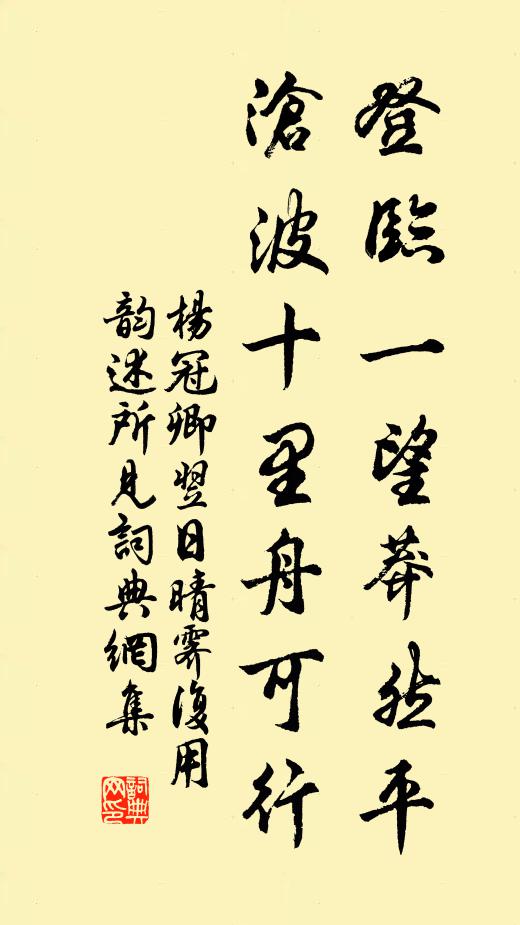 登臨一望莽然平
滄波十里舟可行
楊冠卿翌日晴霽復用
韵述所見詞典網集
詞典網印